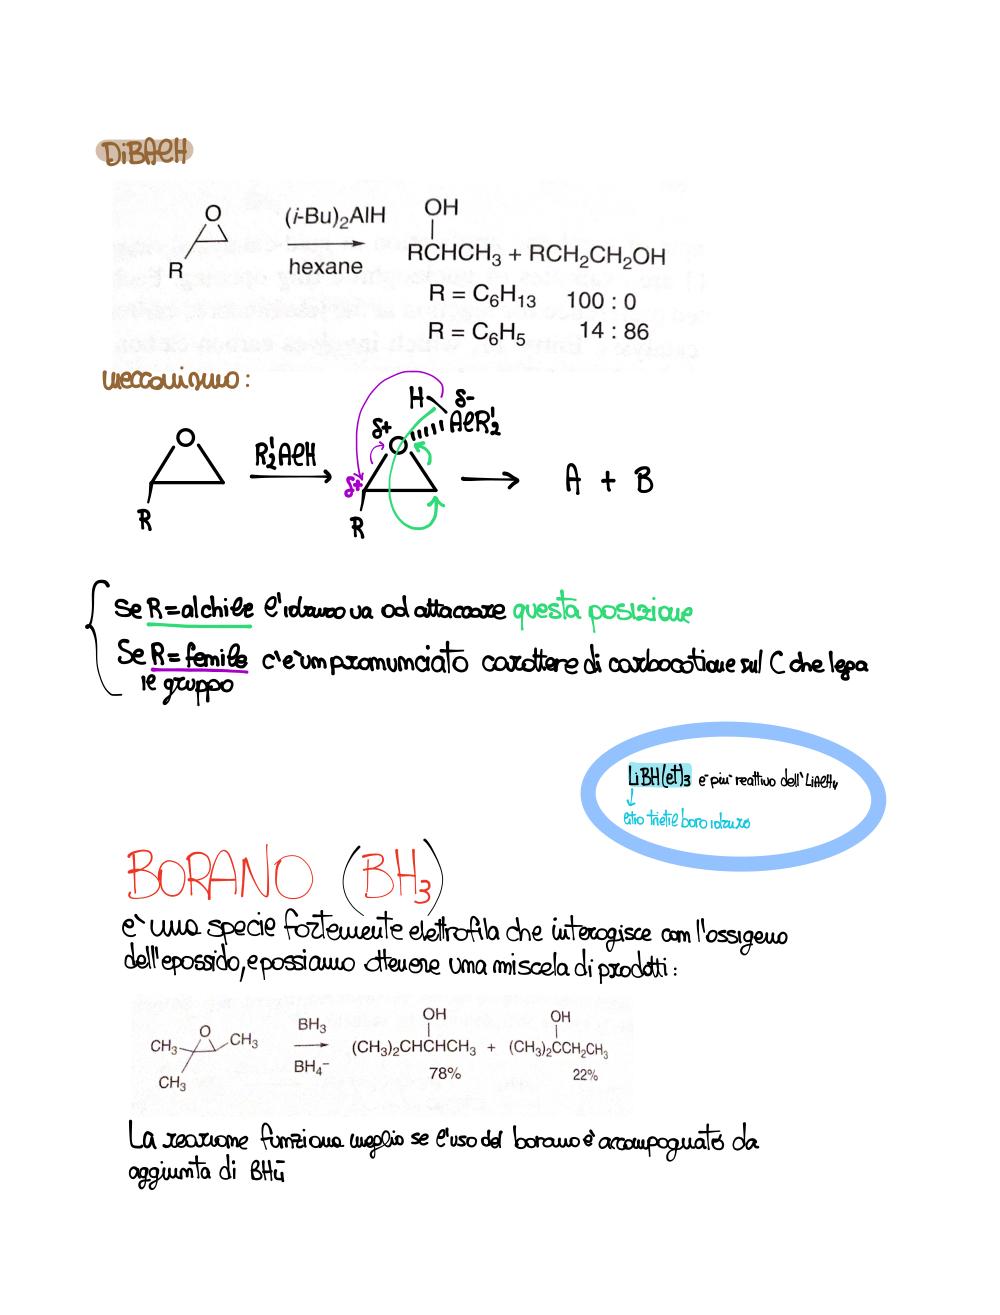 DiBAlH
O
R
(i-Bu)₂AlH
hexane
OH
RCHCH₃ + RCH₂CH₂OH
R = C₆H₁₃ 100 : 0
R = C₆H₅ 14 : 86
meccanismo:
O
R
R₂'AlH
H δ-
δ+ AlR₂'
O
δ+
R
A + B
Se R = alchile l'idruro va ad attaccare questa posizione
Se R = fenile c'è un pronunciato carattere di carbocatione sul C che lega
il gruppo
LiBH(et)₃ è più reattivo dell'LiAlH₄
litio trietil boro idruro
BORANO (BH₃)
è una specie fortemente elettrofila che interagisce con l'ossigeno
dell'epossido, e possiamo ottenere una miscela di prodotti:
CH₃ O CH₃
CH₃
BH₃
BH₄⁻
OH
(CH₃)₂CHCHCH₃ + (CH₃)₂CCH₂CH₃
OH
78% 22%
La reazione funziona meglio se l'uso del borano è accompagnato da
aggiunta di BH₄⁻